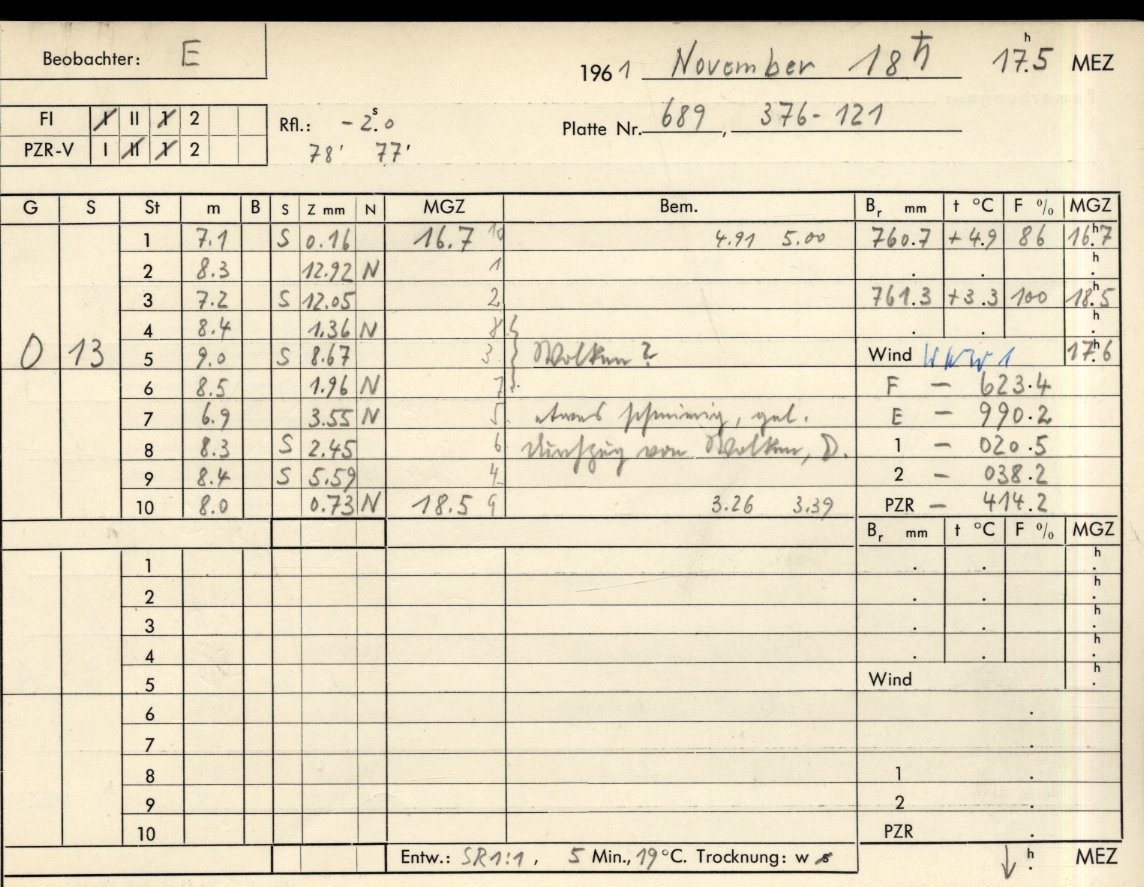 Beobachter: E
1961 November 18 ♄ 17.ʰ5 MEZ
FI I II 1 2
PZR-V I II 1 2
Rfl.: -2.ˢ0
78' 77'
Platte Nr. 689, 376-121
G S St m B S Z mm N MGZ Bem. Bᵣ mm t °C F % MGZ
1 7.1 S 0.16 16.7 10 4.91 5.00 760.7 +4.9 86 16.ʰ7
2 8.3 12.92 N 1 . . h.
3 7.2 S 12.05 2 761.3 +3.3 100 18.ʰ5
4 8.4 1.36 N 8 . . h.
0 13 5 9.0 S 8.67 3 Wolken? Wind WNW 1 17.ʰ6
6 8.5 1.96 N 7 F – 623.4
7 6.9 3.55 N 5 etwas schmierig, gel. E – 990.2
8 8.3 S 2.45 6 Durchzug von Wolken, D. 1 – 020.5
9 8.4 S 5.59 4 2 – 038.2
10 8.0 0.73 N 18.5 9 3.26 3.39 PZR – 414.2
Bᵣ mm t °C F % MGZ
1 . . h.
2 . . h.
3 . . h.
4 . . h.
5 Wind h.
6 .
7 .
8 1 .
9 2 .
10 PZR .
Entw.: SR1:1, 5 Min., 19°C. Trocknung: w s ↓ h. MEZ